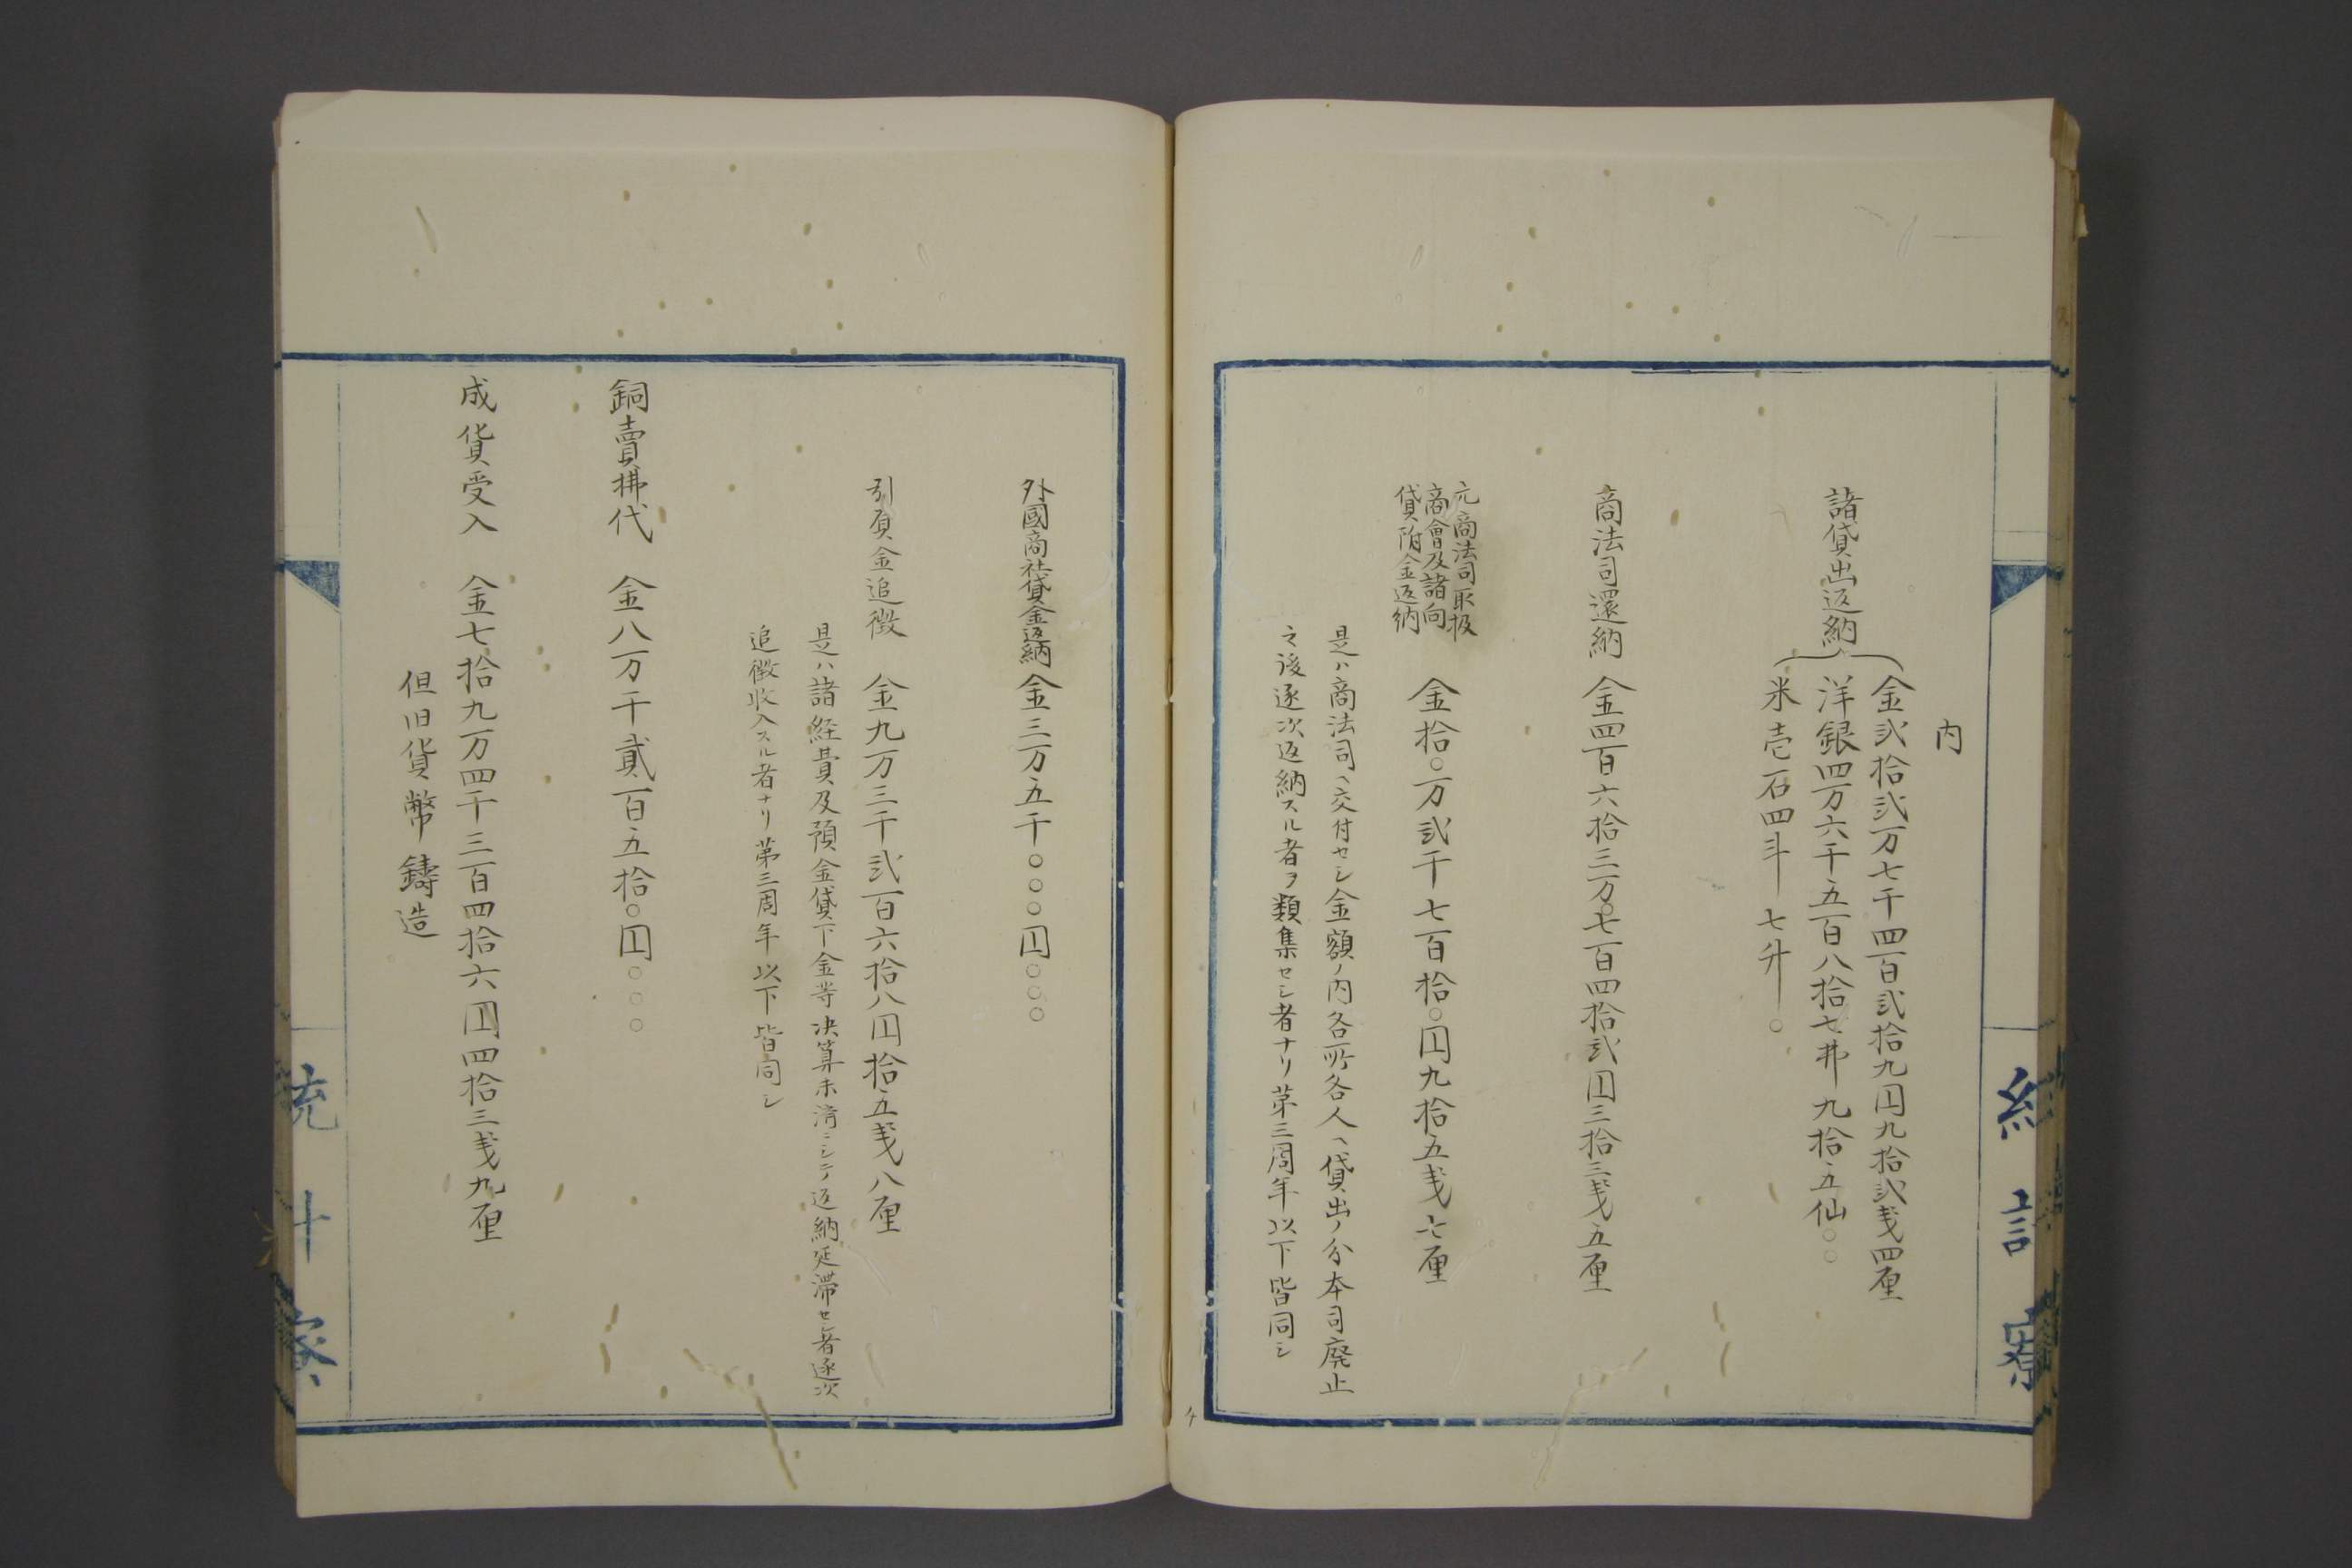 内
諸貸出返納
金弐拾弐万七千四百弐拾九円九拾弐戔四厘
洋銀四万六千五百八拾七弗九拾五仙○○
米壱石四斗七升○
商法司還納 金四百六拾三万○七百四拾弐円三拾三戔五厘
元商法司取扱
商會及諸向
貸附金返納
金拾○万弐千七百拾○円九拾五戔七厘
是ハ商法司ヘ交付セシ金額ノ内各所各人ヘ貸出ノ分本司廃止
之後逐次返納スル者ヲ類集セシ者ナリ第三周年以下皆同シ
外國商社貸金返納 金三万五千○○○円○○○
引負金追徴 金九万三千弐百六拾八円拾五戔八厘
是ハ諸経費及預金貸下金等決算未済ニシテ返納延滞セシ者逐次
追徴収入スル者ナリ第三周年以下皆同シ
銅賣拂代 金八万千貳百五拾○円○○○
成貨受入 金七拾九万四千三百四拾六円四拾三戔九厘
但旧貨幣鋳造